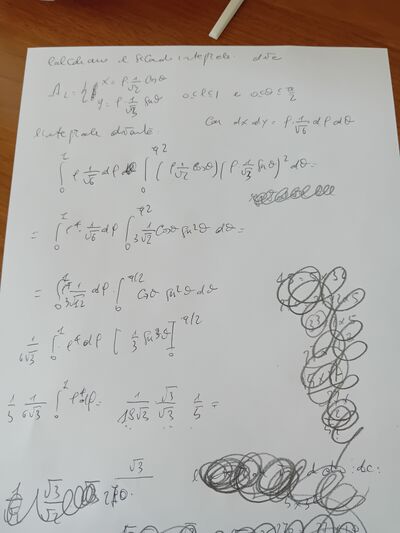 Calcoliamo il secondo integrale. dove
A₂ = { x = ρ 1/√2 cosθ
y = ρ 1/√3 senθ 0≤ρ≤1 e 0≤θ≤π/2
con dx dy = ρ · 1/√6 dρ dθ
L'integrale diventa
∫₀¹ ρ 1/√6 dρ ∫₀^{π/2} (ρ 1/√2 cosθ)(ρ 1/√3 senθ)² dθ =
= ∫₀¹ ρ⁴ · 1/√6 dρ ∫₀^{π/2} 1/(3√2) cosθ sen²θ dθ =
= ∫₀¹ ρ⁴ 1/(3√12) dρ ∫₀^{π/2} cosθ sen²θ dθ
1/(6√3) ∫₀¹ ρ⁴ dρ [1/3 sen³θ]₀^{π/2}
1/3 1/(6√3) ∫₀¹ ρ⁴ dρ = 1/(18√3) √3/√3 1/5 =
√3/270.